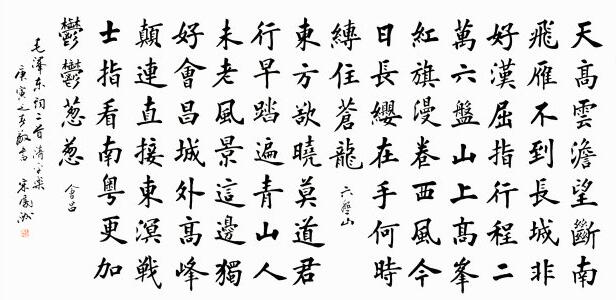 天高雲澹望斷南
飛雁不到長城非
好漢屈指行程二
萬六盤山上高峯
紅旗漫卷西風今
日長纓在手何時
縛住蒼龍 六盤山
東方欲曉莫道君
行早踏遍青山人
未老風景這邊獨
好會昌城外高峰
顛連直接東溟戰
士指看南粤更加
鬱鬱葱葱 會昌
毛澤東詞二首清平樂
庚寅之夏敬書